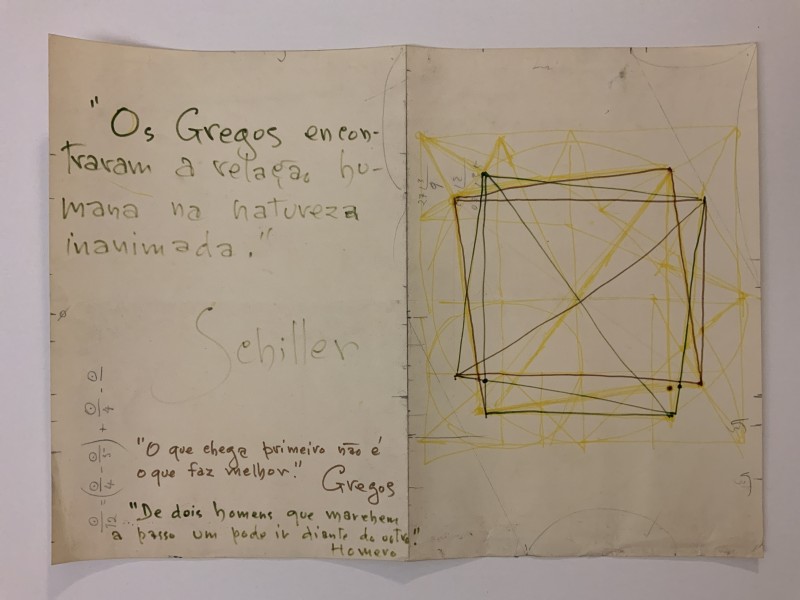 "Os Gregos encon-
traram a relação hu-
mana na natureza
inanimada."
Schiller
"O que chega primeiro não é
o que faz melhor." Gregos
"De dois homens que marchem
a passo um pode ir diante do outro."
Homero